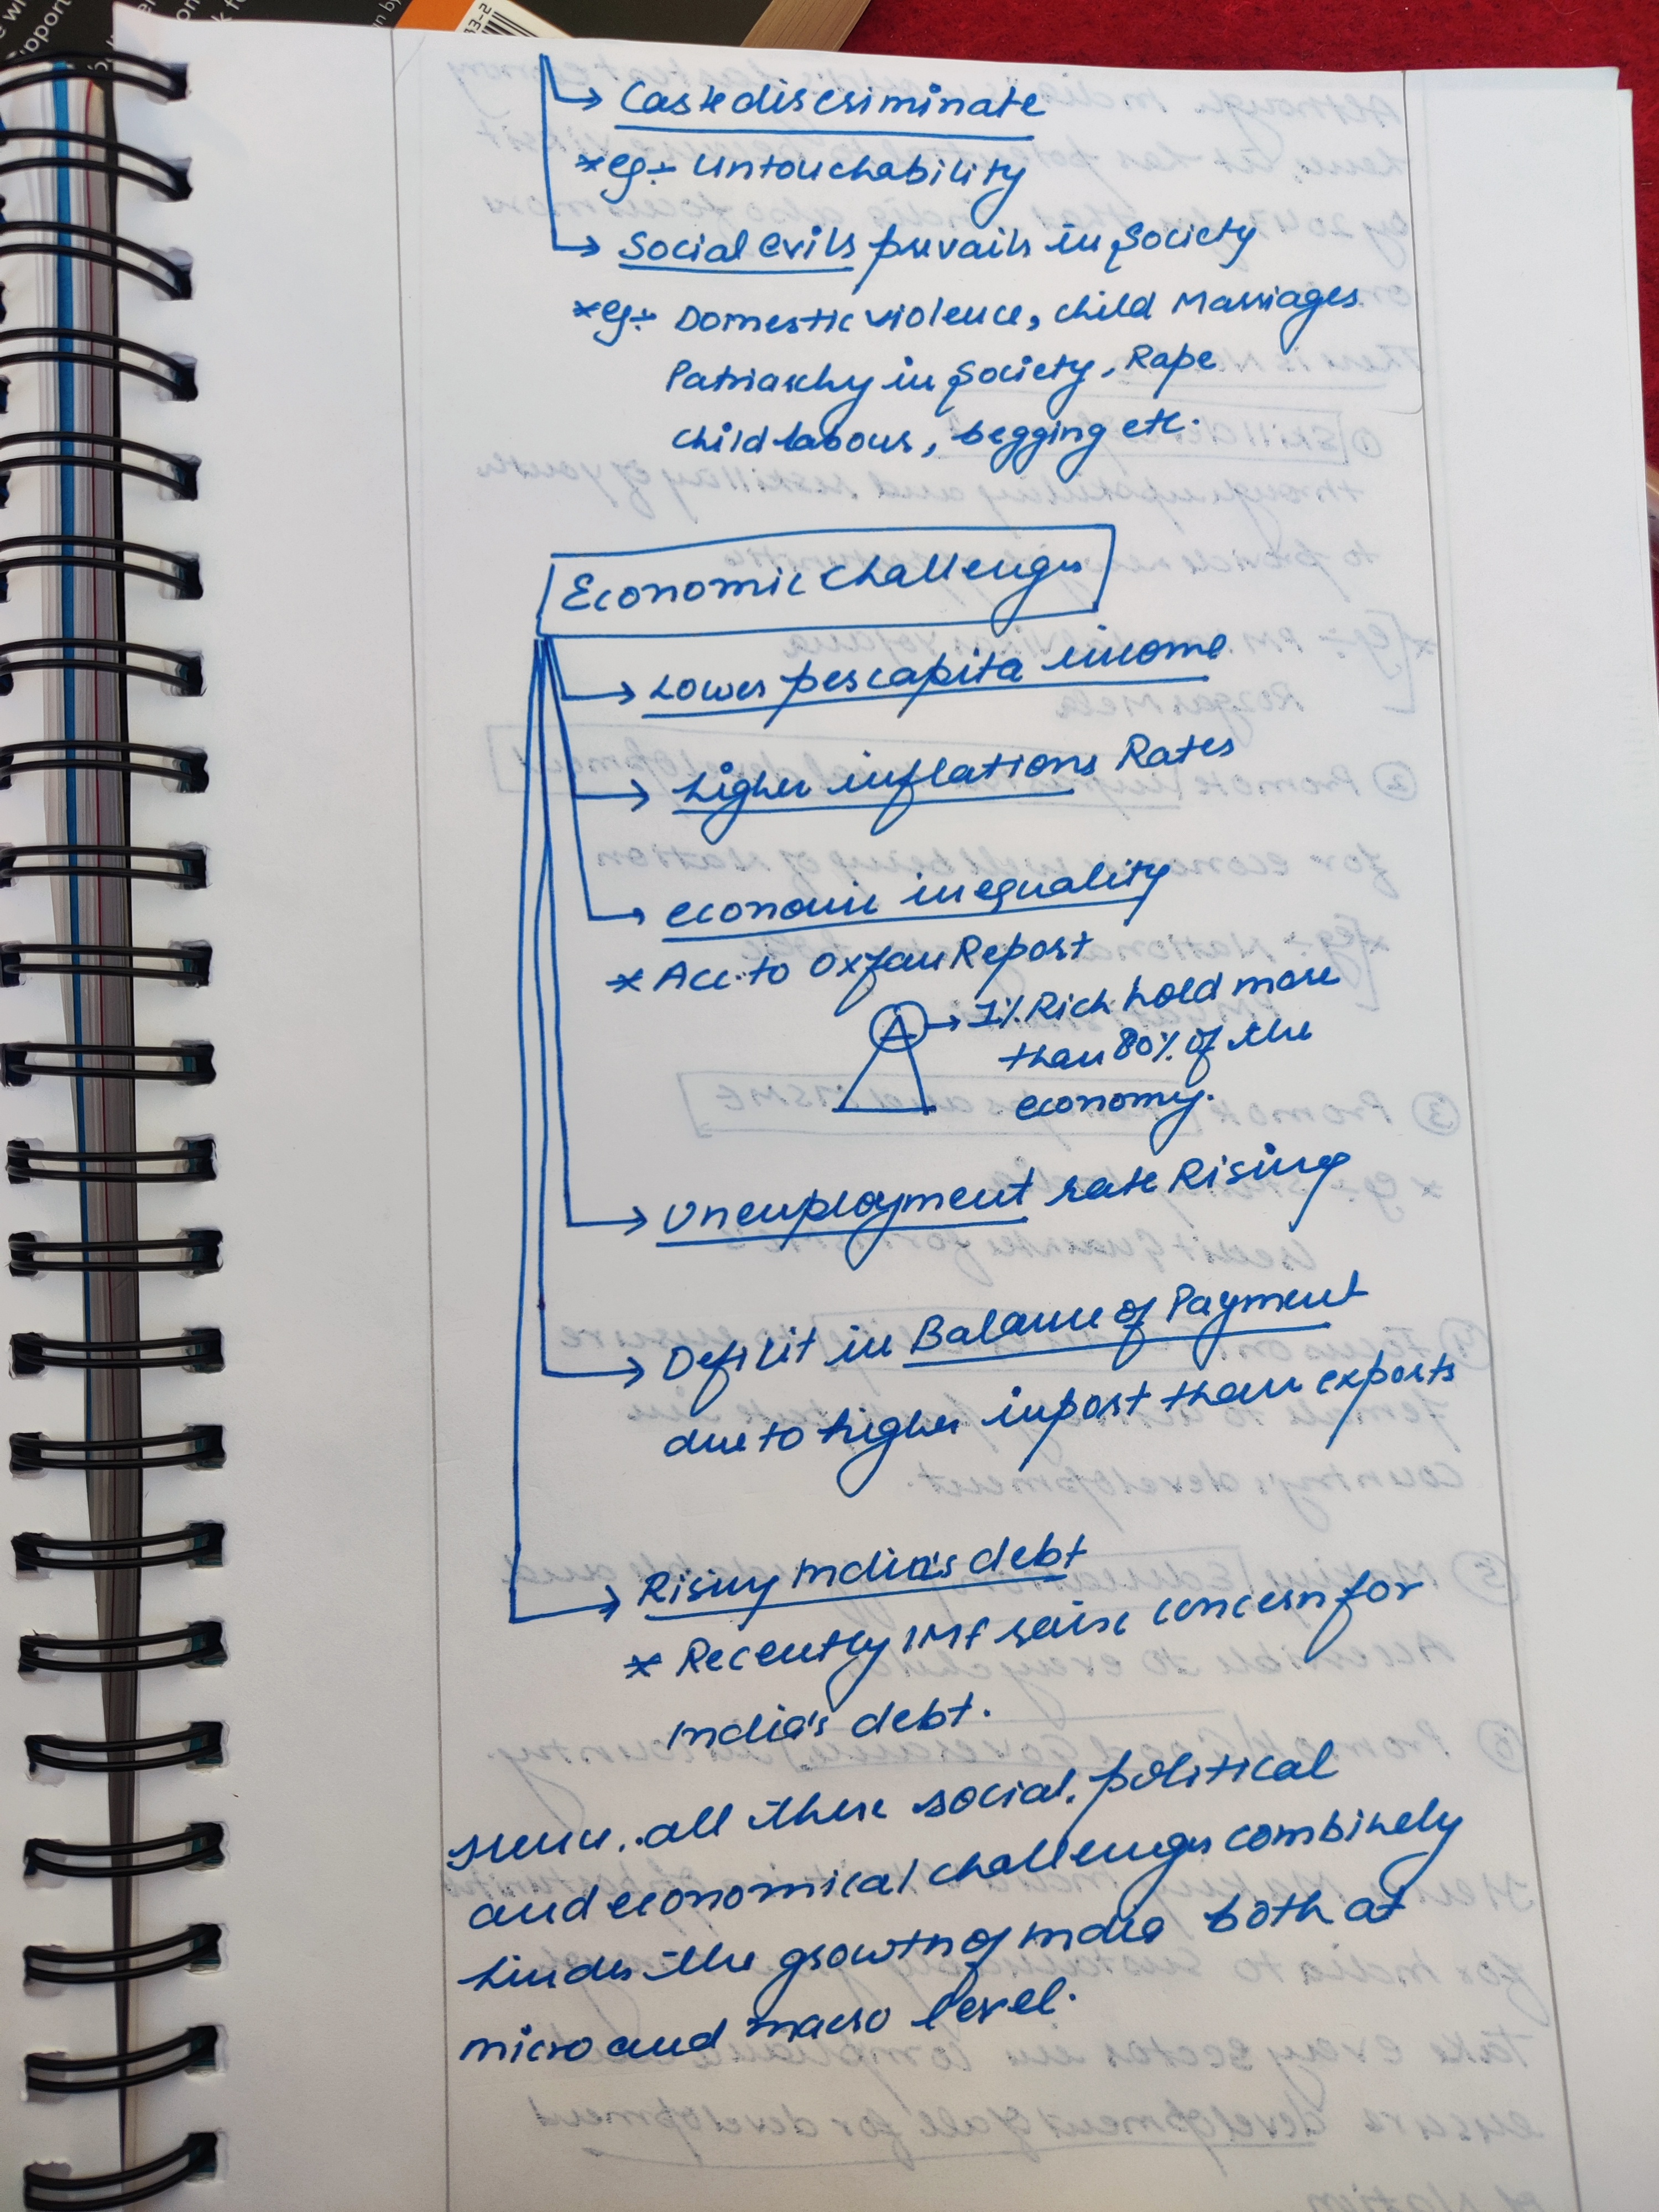 Caste discriminate
*eg:- Untouchability
Social evils prevails in society
*eg:- Domestic violence, child Marriages
Patriarchy in society, Rape
child labour, begging etc.
Economic challenges
Lower per capita income
higher inflations Rates
economic inequality
* Acc. to Oxfam Report
1% Rich hold more
than 80% of the
economy.
Unemployment rate Rising
Deficit in Balance of Payment
due to higher import than exports
Rising India's debt
* Recently IMF raise concern for
India's debt.
Hence, all these social, political
and economical challenges combinely
hinder the growth of India both at
micro and macro level.